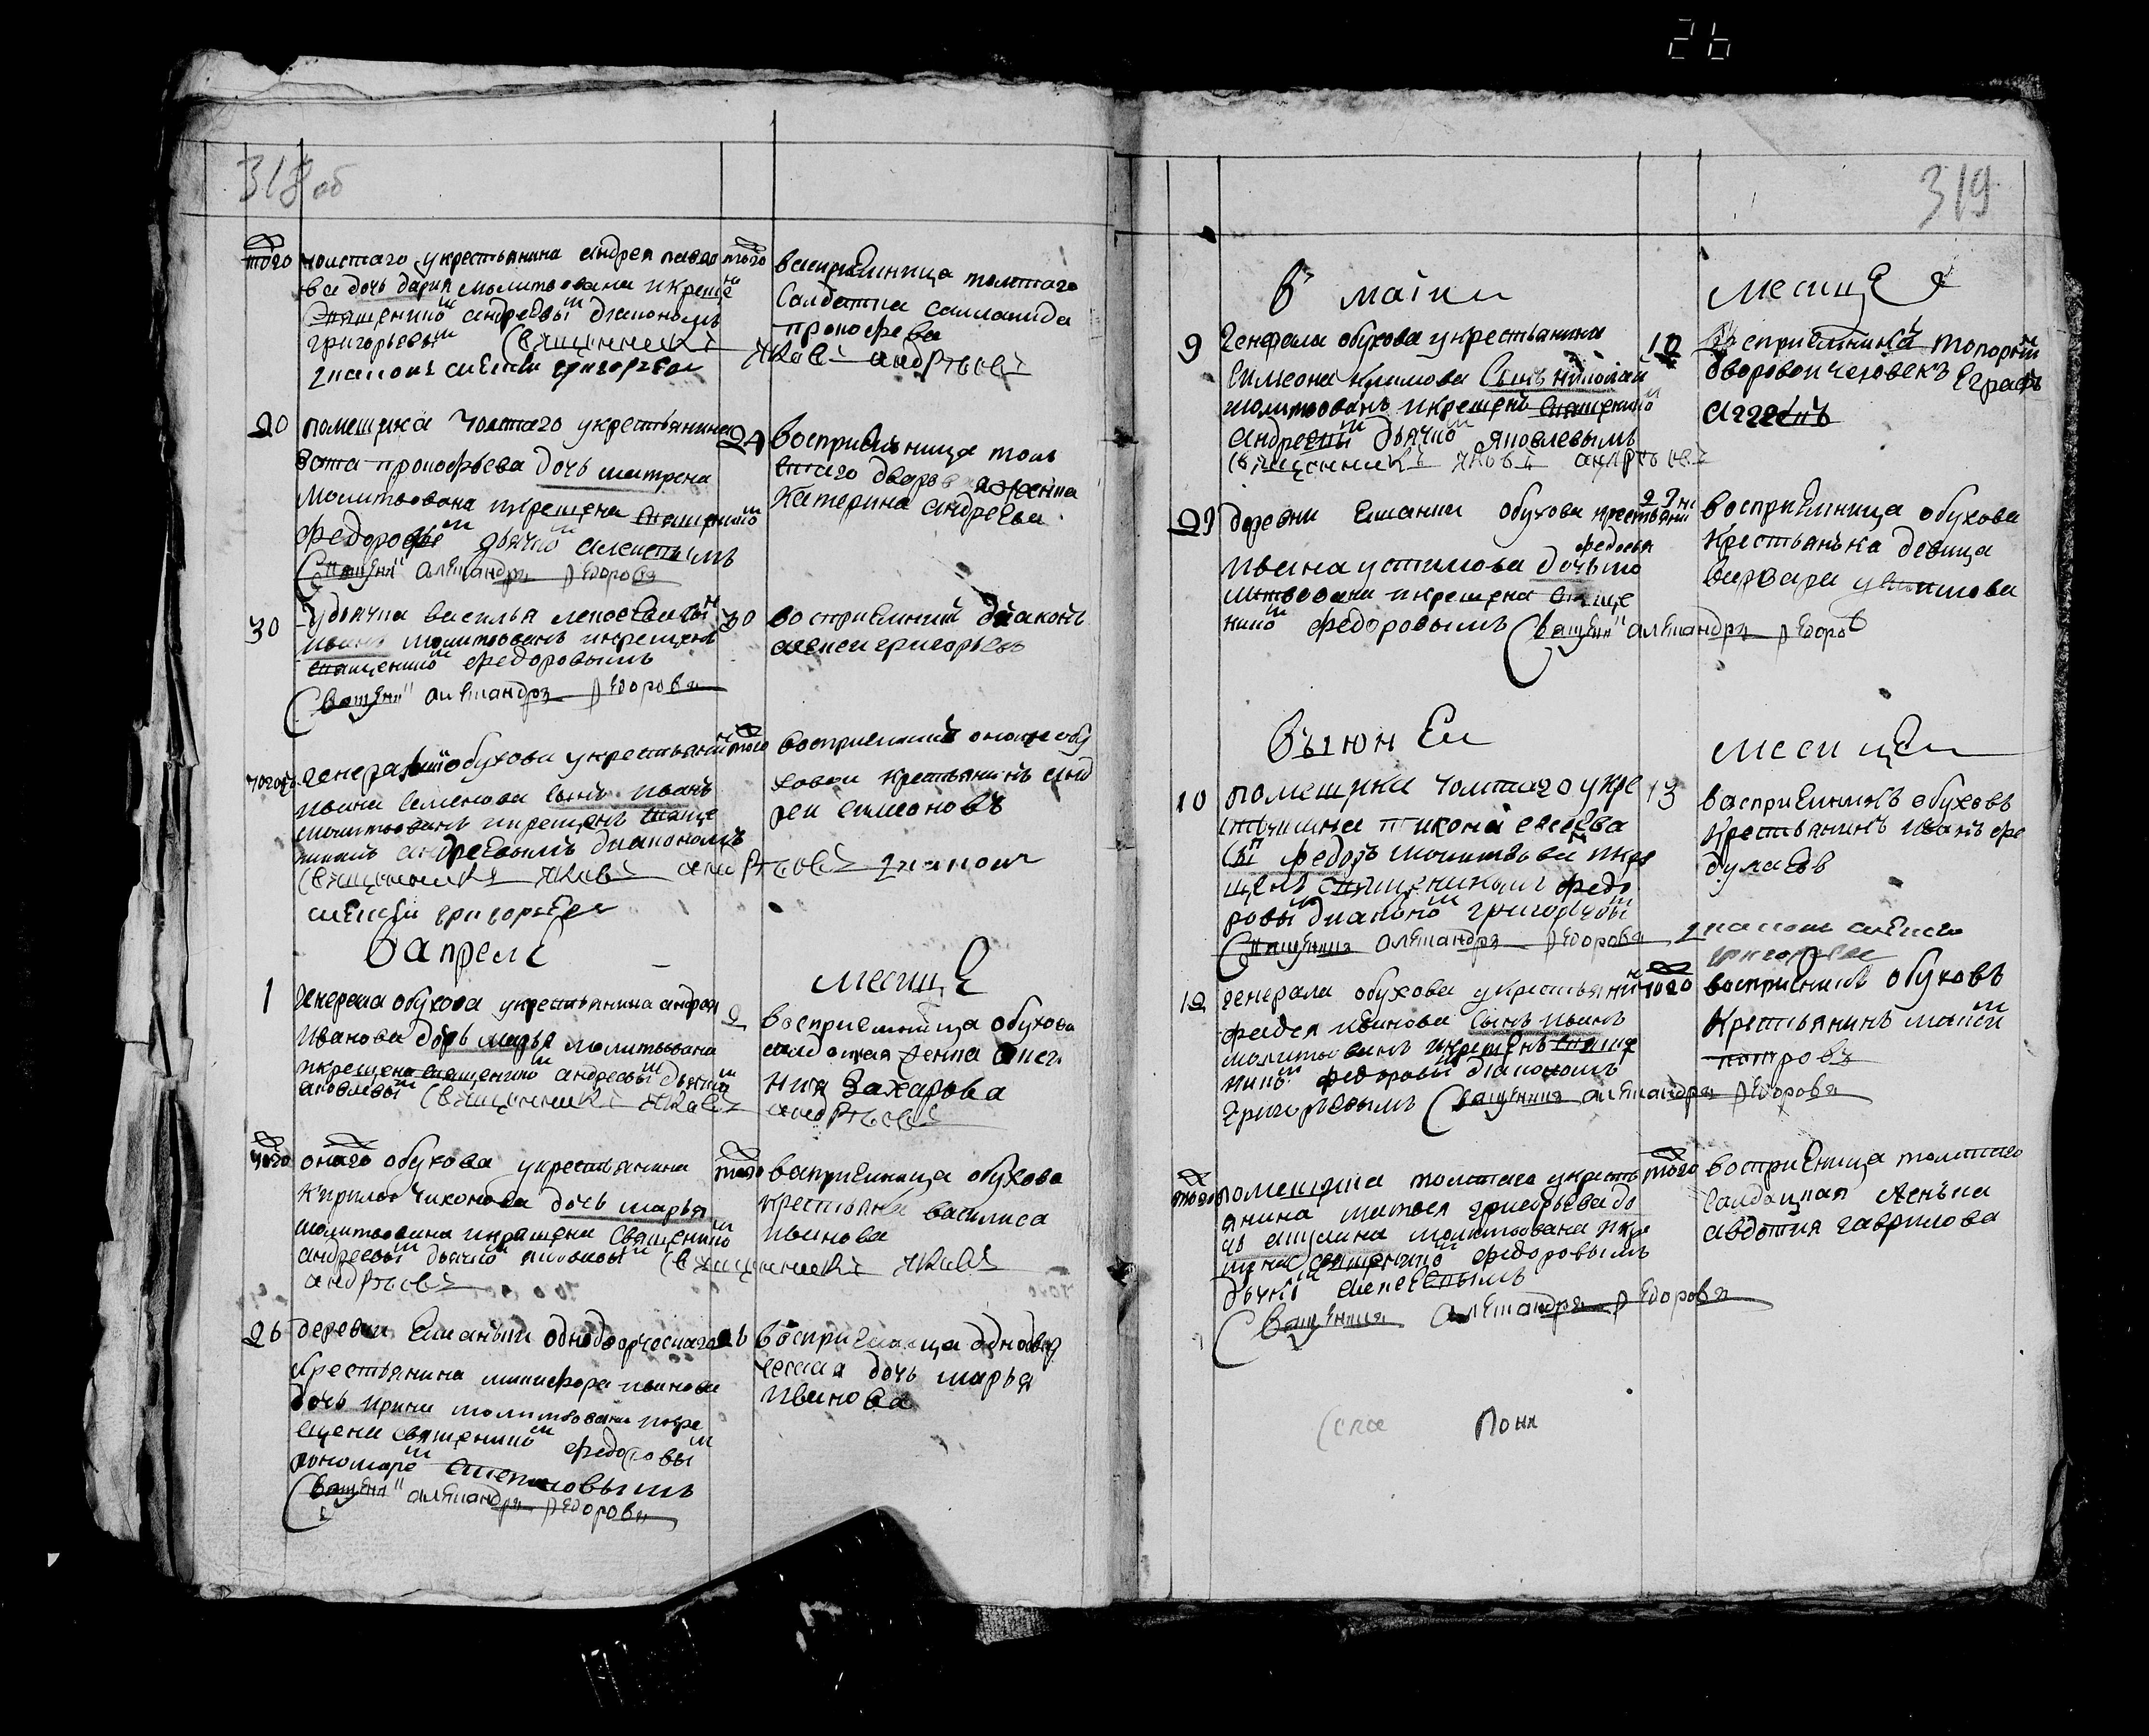 26
318 об
того
толстаго укрестьянина андрея павло
ва дочь дария молитвована икреще на
священником андреевым диаконом
григорьевым Священникъ Яковъ андреевъ
диаконъ алексей григорьевъ
того
васприемница толстаго
Салдатка саламанида
прокофева
20
помещика толстаго укрестьянина
прокофьева дочь матрена
молитвована икрещена священником
федоровым дьячком
Священникъ александръ федоровъ
24
восприемница тол
стаго дваров женка
Катерина андреева
30
удьячка василья алексеева сын
иванъ молитвованъ икрещенъ
священником федоровымъ
Священникъ александръ федоровъ
30
восприемникъ диаконъ
алексей григорьевъ
того
генерала обухова укрестьянина
ивана семенова сынъ иванъ
молитвованъ икрещенъ свяще
никомъ андреевымъ диакономъ
Священникъ Яковъ андреевъ диаконъ
алексей григорьевъ
того
восприемникъ оногоже обу
хова крестьянинъ анд
рей симоновъ
В апреле
месице
1
генерала обухова укрестьянина андрея
иванова дочь марья молитвована
икрещена священником андреевым дьячком
яковлевым Священникъ Яковъ андреевъ
2
восприемница обухова
салдацкая женка
Захарова
того
онаго обухова укрестьянина
кирила тихонова дочь марья
молитвована икрещена священником
андреевым дьячком яковлевым Священникъ Яковъ
андреевъ
того
васприемница обухова
крестьянка василиса
иванова
26
деревни однодворческаго
крестьянина никифора иванова
дочь ирина молитвована икре
щена священником федоровым
пономаре
Священникъ александръ федоровъ
26
восприемница однодвор
ческая дочь марья
иванова
319
В маии
месице
9
генерала обухова укрестьянина
симеона климова сынъ николай
молитвованъ икрещенъ священником
андреевым дьячком яковлевымъ
Священникъ Яковъ андреевъ
10
восприемникъ
дворовой человекъ Еграфъ
29
деревни обухова крестьянина
ивана устинова дочь федосья мо
литвована икрещена свяще
ником федоровымъ Священникъ александръ федоровъ
29
восприемница обухова
крестьянка девица
варвара устинова
Въ июнеи
месицеи
10
помещика толстаго укре
стьянина тихона
сын федоръ молитвован икре
щенъ священникомъ федо
ровым диаконом григорьевым
Священникъ александръ федоровъ диаконъ алексей
григорьевъ
13
васприемникъ обуховъ
крестьянинъ иванъ фе
дулаевъ
12
генерала обухова укрестьянина
фадея иванова сынъ иванъ
молитвованъ икрещенъ свяще
ником федоровым диакономъ
григорьевымъ Священникъ александръ федоровъ
того
восприемникъ обуховъ
крестьянинъ
петровъ
того
помещика толстаго укресть
янина матвея григорьева до
чь акулина молитвована икре
щена священником федоровымъ
дьячком алексеевымъ
Священникъ александръ федоровъ
того
восприемница толстаго
салдацкая женъка
авдотия гаврилова